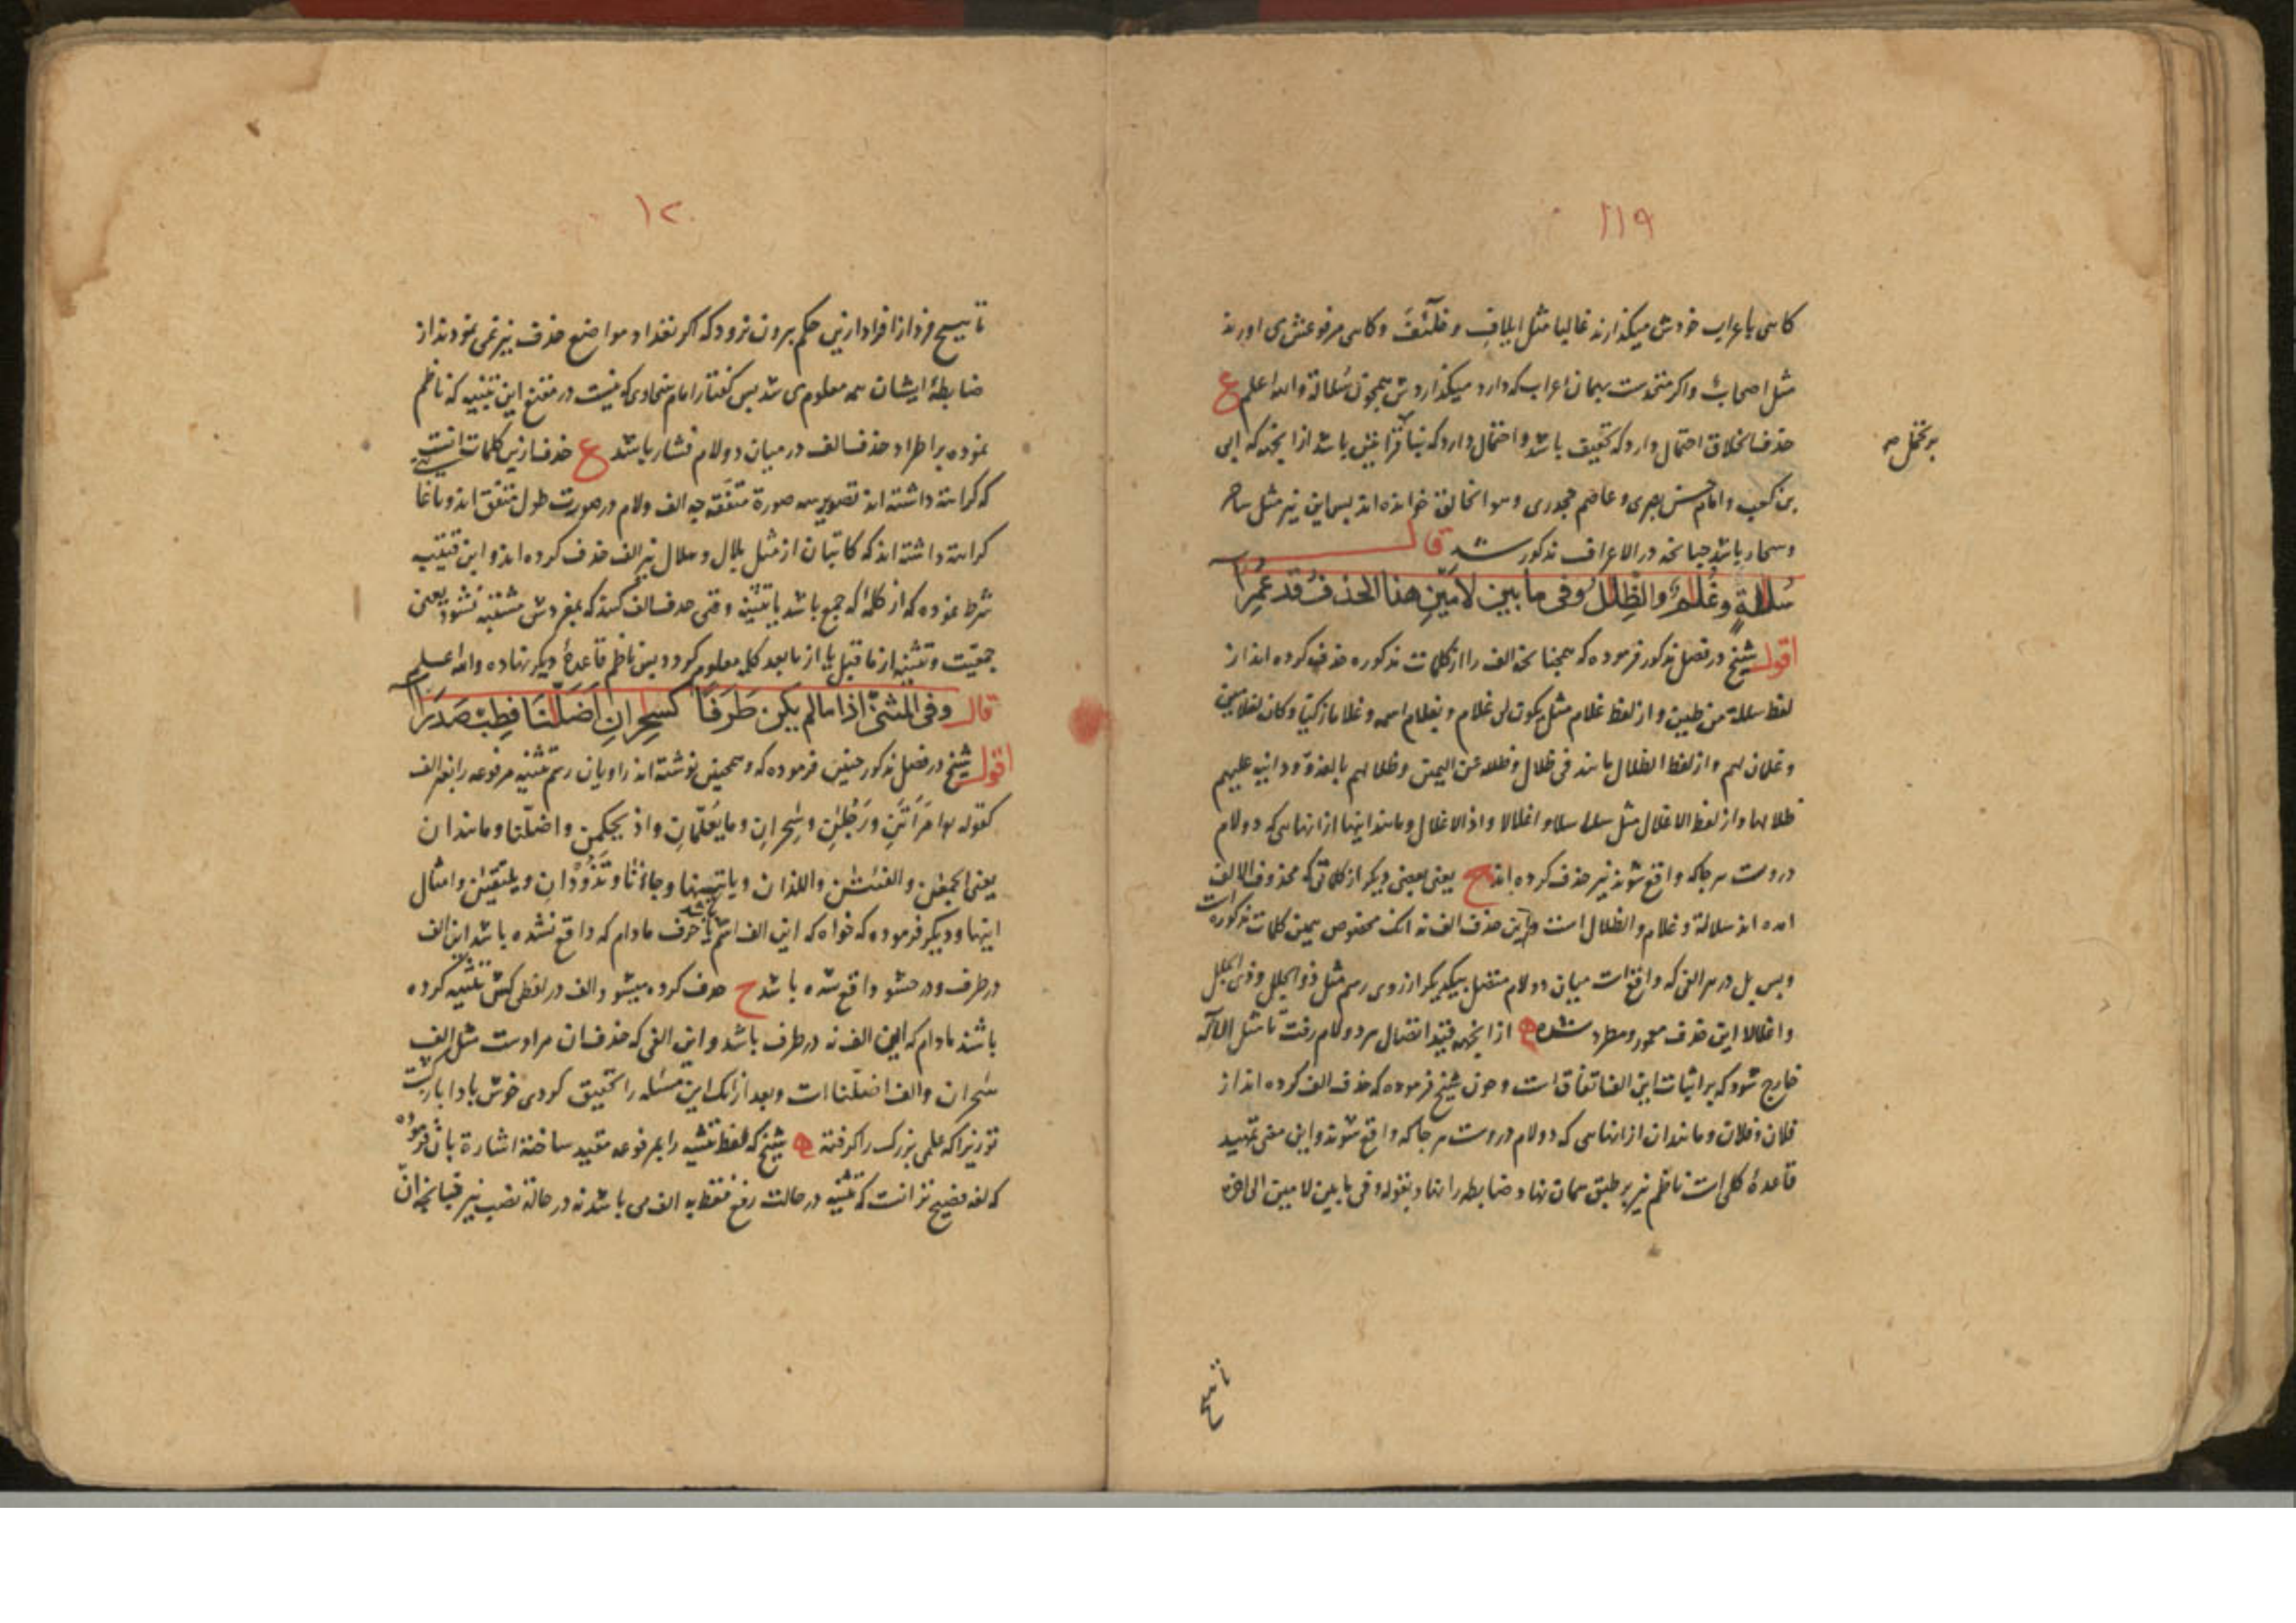 ١١٩
کاهی باعراب خودش میکذارند غالبا مثل ایلاف و خلئف وکاهی مرفوعش می اورند
مثل اصحاب واکر منخوست بهمان اعراب که دارد میکذاردش همچون سلالة والله اعلم ع
حذف خلاق احتمال دارد که تخفیف باشد و احتمال دارد که بنا قراءتین باشد از انجهة که ابی
بن کعب وامام حسن بصری و عاصم جحدری وهو الخالق خوانده اند پس این نیز مثل ساحر
وسحار باشد چنانجه در الاعراف مذکور شد قال
سللة وغلم والظلل وفی ما بین لامین هذا الحذف قد عمرا
اقول شیخ در فصل مذکور فرموده که همچنانجه الف را از کلمات مذکوره حذف کرده اند از
لفظ سللة من طین و از لفظ غلام مثل یکون لی غلام و بغلام اسمه و غلاما زکیا وکان لغلامین
و غلمان لهم و از لفظ الظلال مانند فی ظلال وظلله عن الیمین وظلالهم بالغدو ودانیة علیهم
ظلالها و از لفظ الاغلال مثل سلسلا و اغلالا و اذ الاغلال و مانند اینها از انهایی که دو لام
دروست هرجاکه واقع شوند نیز حذف کرده اند ح یعنی بعضی دیکر از کلماتی که محذوف الالف
امده اند سلالة و غلام و الظلال است و این حذف الف نه انک مخصوص بهمین کلمات مذکوره است
وبس بل در هر الفی که واقع است میان دو لام متصل بیکدیکر از روی رسم مثل ذو الجلل وذی الجلل
و اغلالا این حذف معمور و مطرد شده از انجهة قید اتصال هر دو لام رفت تا مثل اللآکه
خارج شود که بر اثبات این الف اتفاق است و چون شیخ فرموده که حذف الف کرده اند از
فلان و فلان و مانند ان از انهایی که دو لام دروست هرجا که واقع شوند و این معنی تمهید
قاعدهٔ کلی است ناظم نیز بر طبق همان نهاد و ضابطه را نهاد بقوله وفی ما بین لامین الی اخره
١٢٠
تا هیچ فرد از افراد ازین حکم بیرون نرود که اکر تعداد مواضع حذف نیز نمی نمودند از
ضابطهٔ ایشان همه معلوم می شد پس کفتار امام سخاوی که نیست در مقنع این تنبیه که ناظم
نموده بر اطراد حذف الف در میان دو لام فشار باشد ع حذف ازین کلمات انست
که کراهة داشته اند تصویر سه صورة متفقه چه الف ولام در صورت طول متفق اند و باغا
کراهة داشته اند که کاتبان از مثل بلال و هلال نیز الف حذف کرده اند و این قتیبه
شرط نموده که از کلمهٔ که جمع باشد یا تثنیه وقتی حذف الف کنند که بمفردش مشتبه نشود یعنی
جمعیت و تثنیه از ما قبل یا از ما بعد کلمه معلوم کردد پس ناظم قاعدهٔ دیکر نهاده والله اعلم
قال وفی المثنی اذا ما لم یکن طرفا کسحران اضلنا فطب صدرا
اقول شیخ در فصل مذکور چنین فرموده که وهمچنین نوشته اند راویان رسم تثنیه مرفوعه را بغیر الف
کقوله وامرأتن ورجلن وسحران وما یعلمان واذ یحکمن واضلنا و مانند ان
یعنی الجمعن و الفئتن و اللذان و یاتیینها و جاءنا و تذودان و یلتقین و امثال
اینها و دیکر فرموده که خواه که این الف اسم باشد یا حرف مادام که واقع نشده باشد این الف
در طرف و در حشو واقع شده باشد ح حذف کرده میشود الف در لفظی کش تثنیه کرده
باشند مادام که این الف نه در طرف باشد و این الفی که حذف ان مرادست مثل الف
سحران و الف اضلنا است و بعد از انک این مسئله را تحقیق کردی خوش باد ا بارکت
تو زیراکه علمی بزرک را کرفته شیخ که لفظ تثنیه را بمرفوعه مقید ساخته اشارة بان فرموده
که لغة فصیح تر انست که تثنیه در حالت رفع فقط به الف می باشد نه در حالة نصب نیز چنانچه ان
تا هیچ